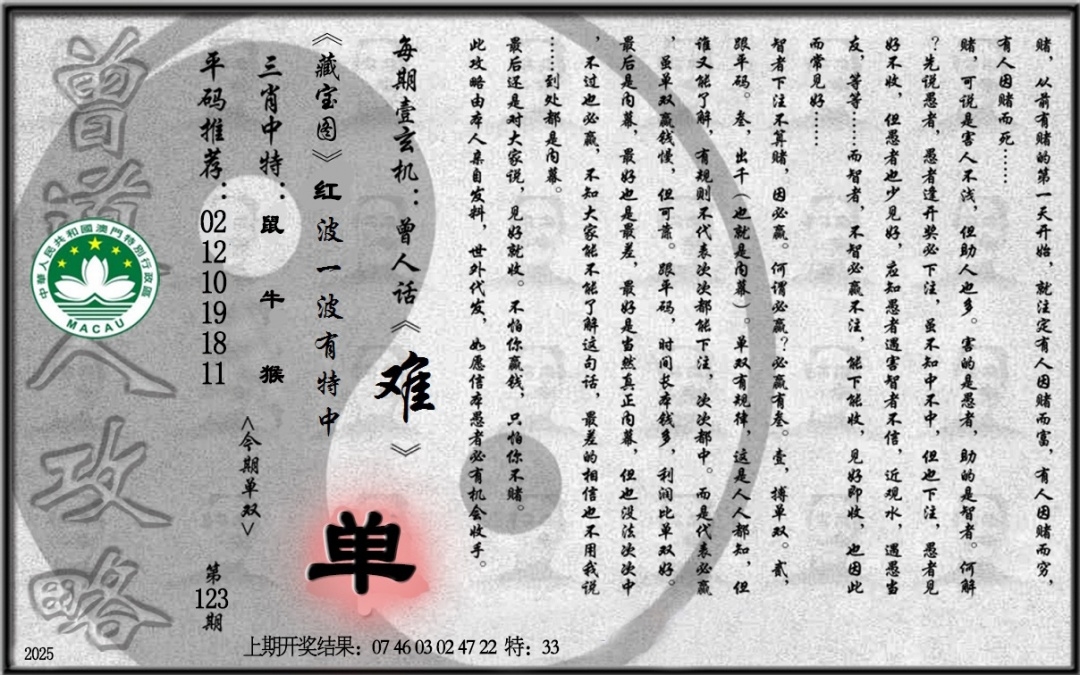 赌，从前有赌的第一天开始，就注定有人因赌而富，有人因赌而穷，
有人因赌而死……
赌，可说是害人不浅，但助人也多。害的是愚者，助的是智者。何解
？先说愚者，愚者逢开奖必下注，虽不知中不中，但也下注，愚者见
好不收，但愚者也少见好，应知愚者遇害智者不信，近观水，遇愚当
友，等等……而智者，不智必赢不注，能下能收，见好即收，也因此
而常见好……
智者下注不算赌，因必赢。何谓必赢？必赢有叁。壹，搏单双。贰，
跟平码。叁，出千（也就是内幕）。单双有规律，这是人人都知，但
谁又能了解，有规则不代表次次都能下注，次次都中。而是代表必赢
，虽单双赢钱慢，但可靠。跟平码，时间长本钱多，利润比单双好。
最后是内幕，最好也是最差，最好是当然真正内幕，但也没法次次中
，不过也必赢，不知大家能不能了解这句话，最差的相信也不用我说
……到处都是内幕。
最后还是对大家说，见好就收。不怕你赢钱，只怕你不赌。
此攻略由本人亲自发料，世外代发，如愿信本愚者必有机会收手。
每期壹玄机：曾人话《难》
《藏宝图》红波一波有特中
单
三肖中特：鼠 牛 猴
<今期单双>
平码推荐：02 12 10 19 18 11
第123期
曾道人攻略
中華人民共和國澳門特別行政區
MACAU
2025
上期开奖结果：07 46 03 02 47 22 特：33